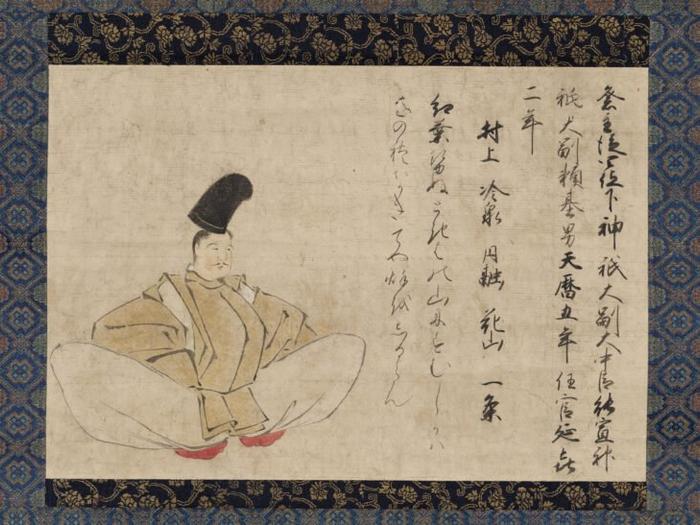 祭主従四位下神祇大副大中臣能宣神
祇大副頼基男天暦五年任官延㐂
二年
村上 冷泉 円融 花山 一条
紅葉せぬときはの山にすむしかは
をのれなきてや秋をしるらん